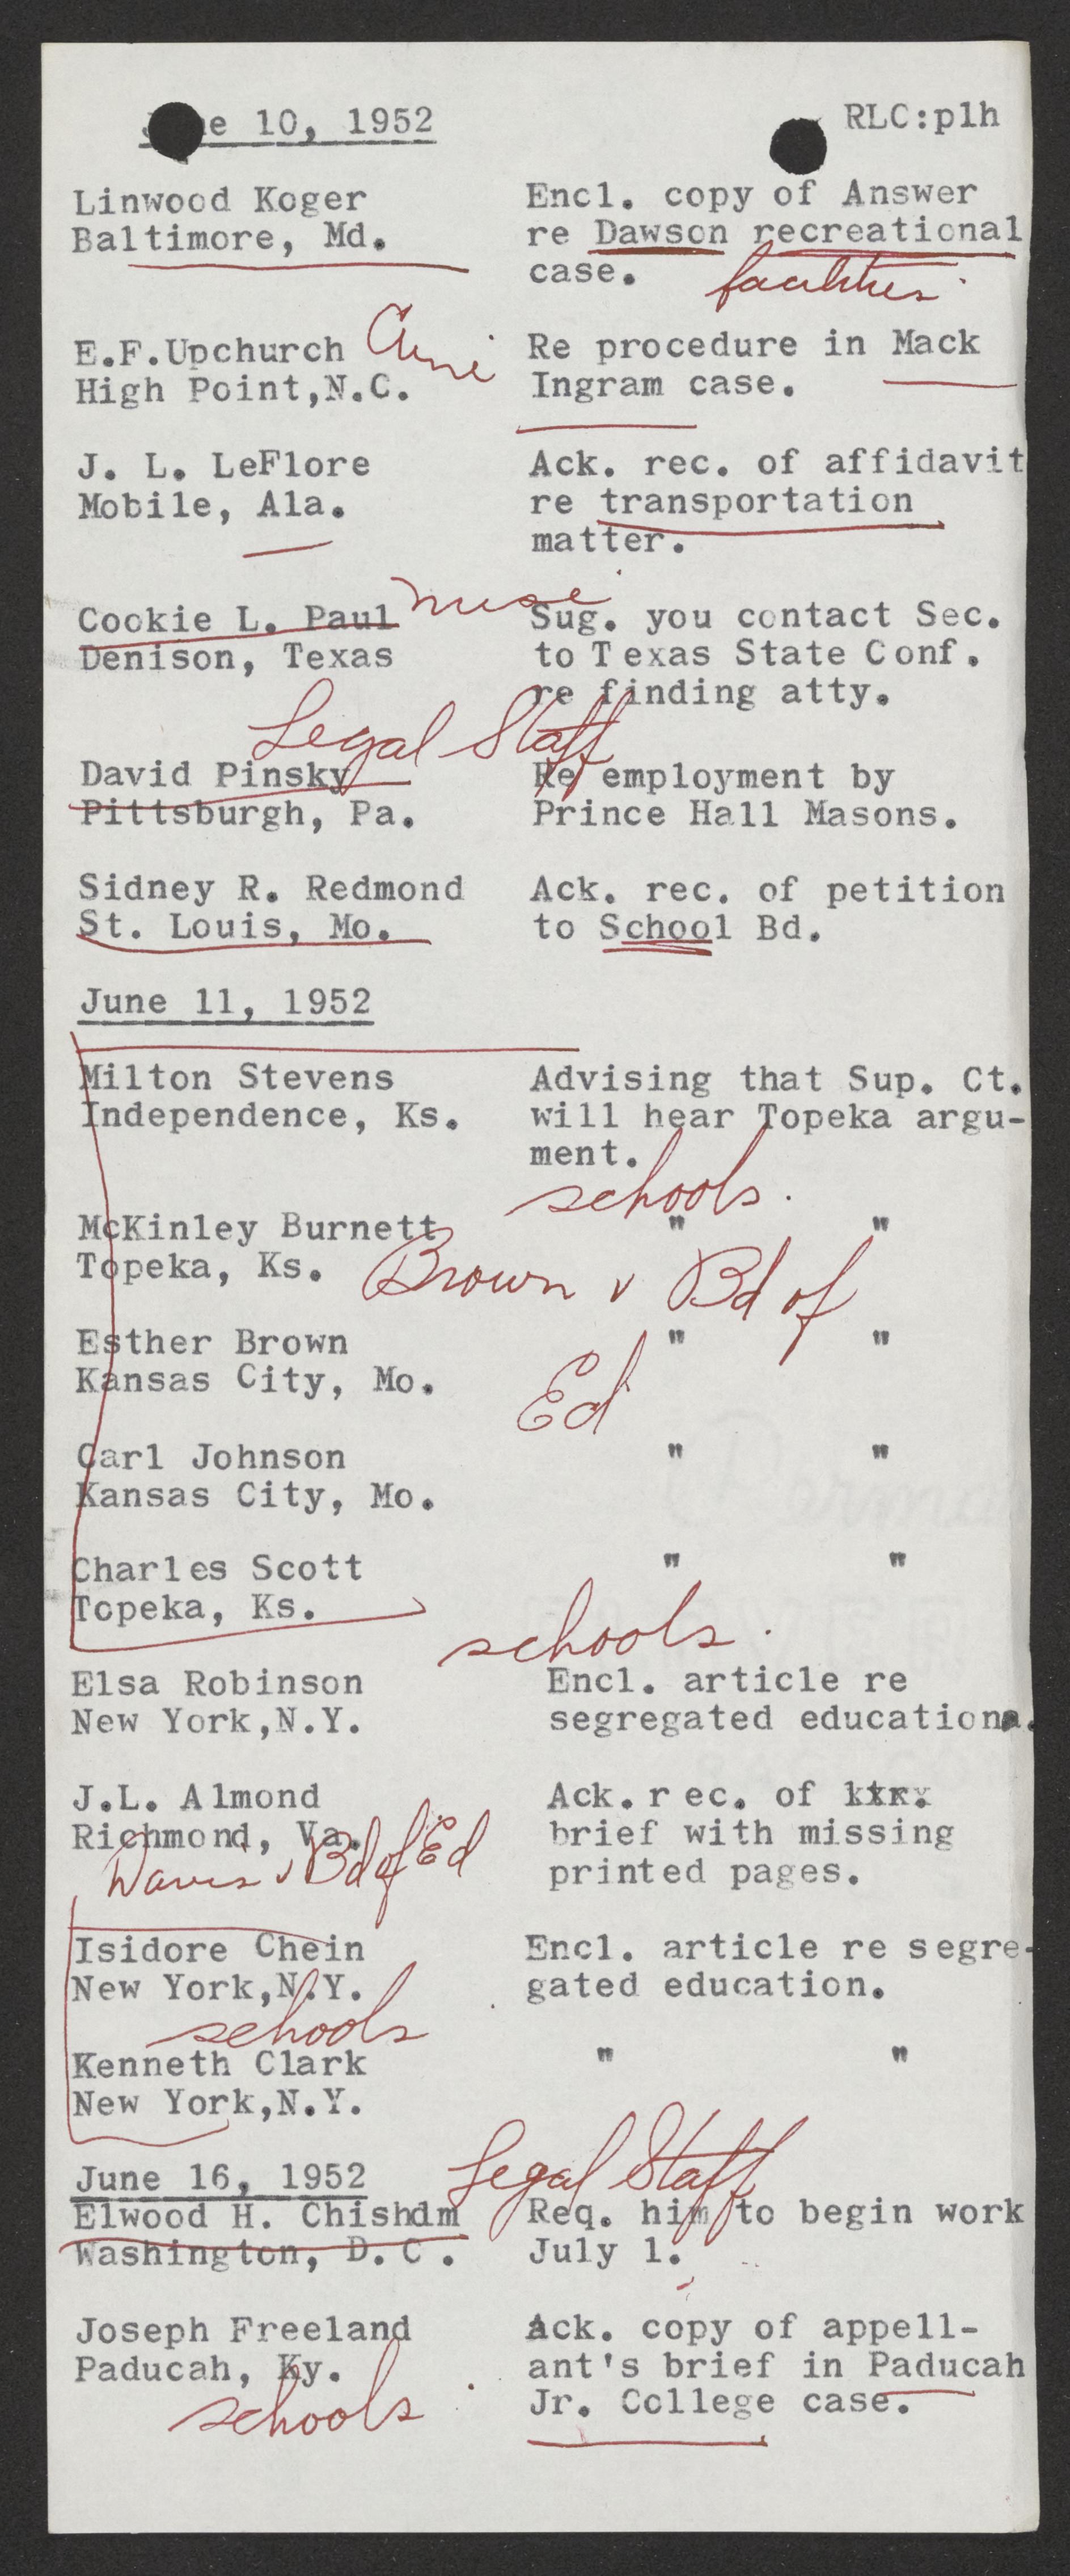 June 10, 1952 RLC:plh
Linwood Koger Encl. copy of Answer
Baltimore, Md. re Dawson recreational
case. facilities
E.F.Upchurch Crime Re procedure in Mack
High Point,N.C. Ingram case.
J. L. LeFlore Ack. rec. of affidavit
Mobile, Ala. re transportation
matter.
Cookie L. Paul Sug. you contact Sec.
Denison, Texas to Texas State Conf.
re finding atty.
Legal Staff
David Pinsky Re employment by
Pittsburgh, Pa. Prince Hall Masons.
Sidney R. Redmond Ack. rec. of petition
St. Louis, Mo. to School Bd.
June 11, 1952
Milton Stevens Advising that Sup. Ct.
Independence, Ks. will hear Topeka argu-
ment.
schools.
McKinley Burnett " "
Topeka, Ks. Brown v Bd of
Esther Brown " "
Kansas City, Mo. Ed
Carl Johnson " "
Kansas City, Mo.
Charles Scott " "
Topeka, Ks.
schools.
Elsa Robinson Encl. article re
New York,N.Y. segregated education.
J.L. Almond Ack. rec. of
Richmond, Va. brief with missing
Davis v Bd of Ed printed pages.
Isidore Chein Encl. article re segre-
New York,N.Y. gated education.
schools
Kenneth Clark " "
New York,N.Y.
Legal Staff
June 16, 1952
Elwood H. Chishdm Req. him to begin work
Washington, D.C. July 1.
Joseph Freeland Ack. copy of appell-
Paducah, Ky. ant's brief in Paducah
schools Jr. College case.